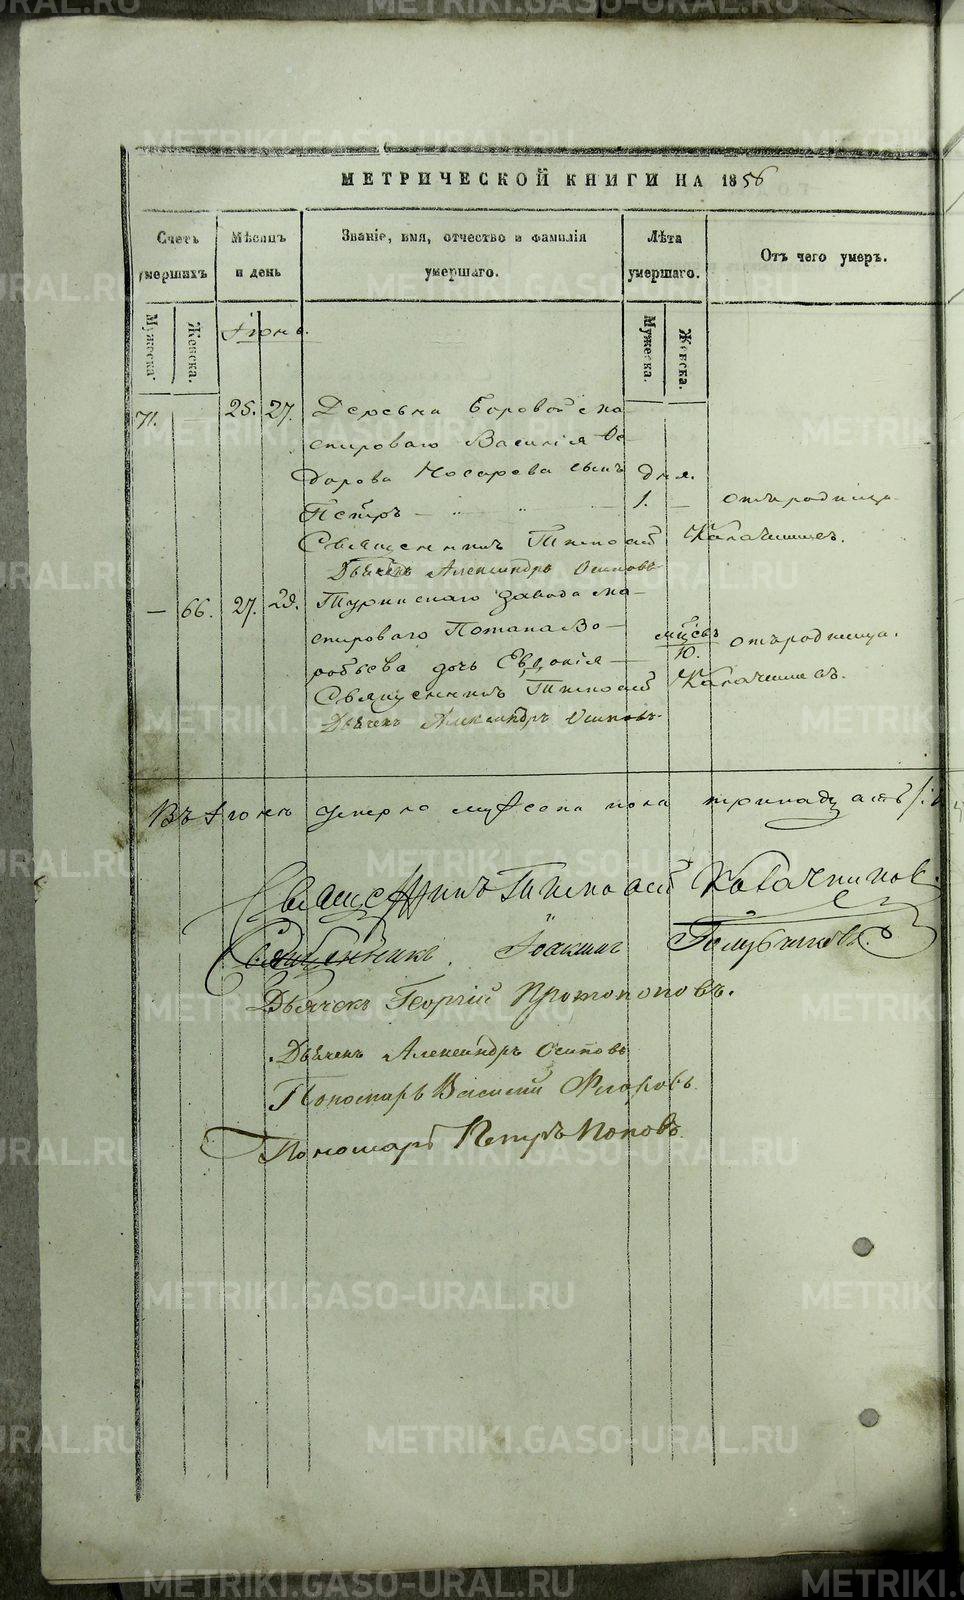 МЕТРИЧЕСКОЙ КНИГИ НА 1856
Счетъ умершихъ
Мѣсяцъ и день
Званіе, имя, отчество и фамилія умершаго.
Лѣта умершаго.
Отъ чего умеръ.
Мужеска.
Женска.
Мужеска.
Женска.
Іюнь.
71. — 25. 27. Деревни Боровой ма-
стероваго Василія Ѳе-
дорова Носарева сынъ дня.
Петръ — 1. — отъ родимца
Священникъ Тимоѳей
Дьячекъ Александръ Осиповъ
— 66. 27. 29. Туринскаго завода ма-
стероваго Потапа Во- мѣсѣвъ отъ родимца.
робьева дочь Евдокія — 10.
Священникъ Тимоѳей
Дьячекъ Александръ Осиповъ
Въ Іюнѣ умерло мужеска пола тринадцать
Священникъ Тимоѳей
Священникъ Іоакимъ
Дьячекъ Георгій Протопоповъ.
Дьячекъ Александръ Осиповъ
Пономарь Василій
Пономарь Петръ Поповъ
METRIKI.GASO-URAL.RU